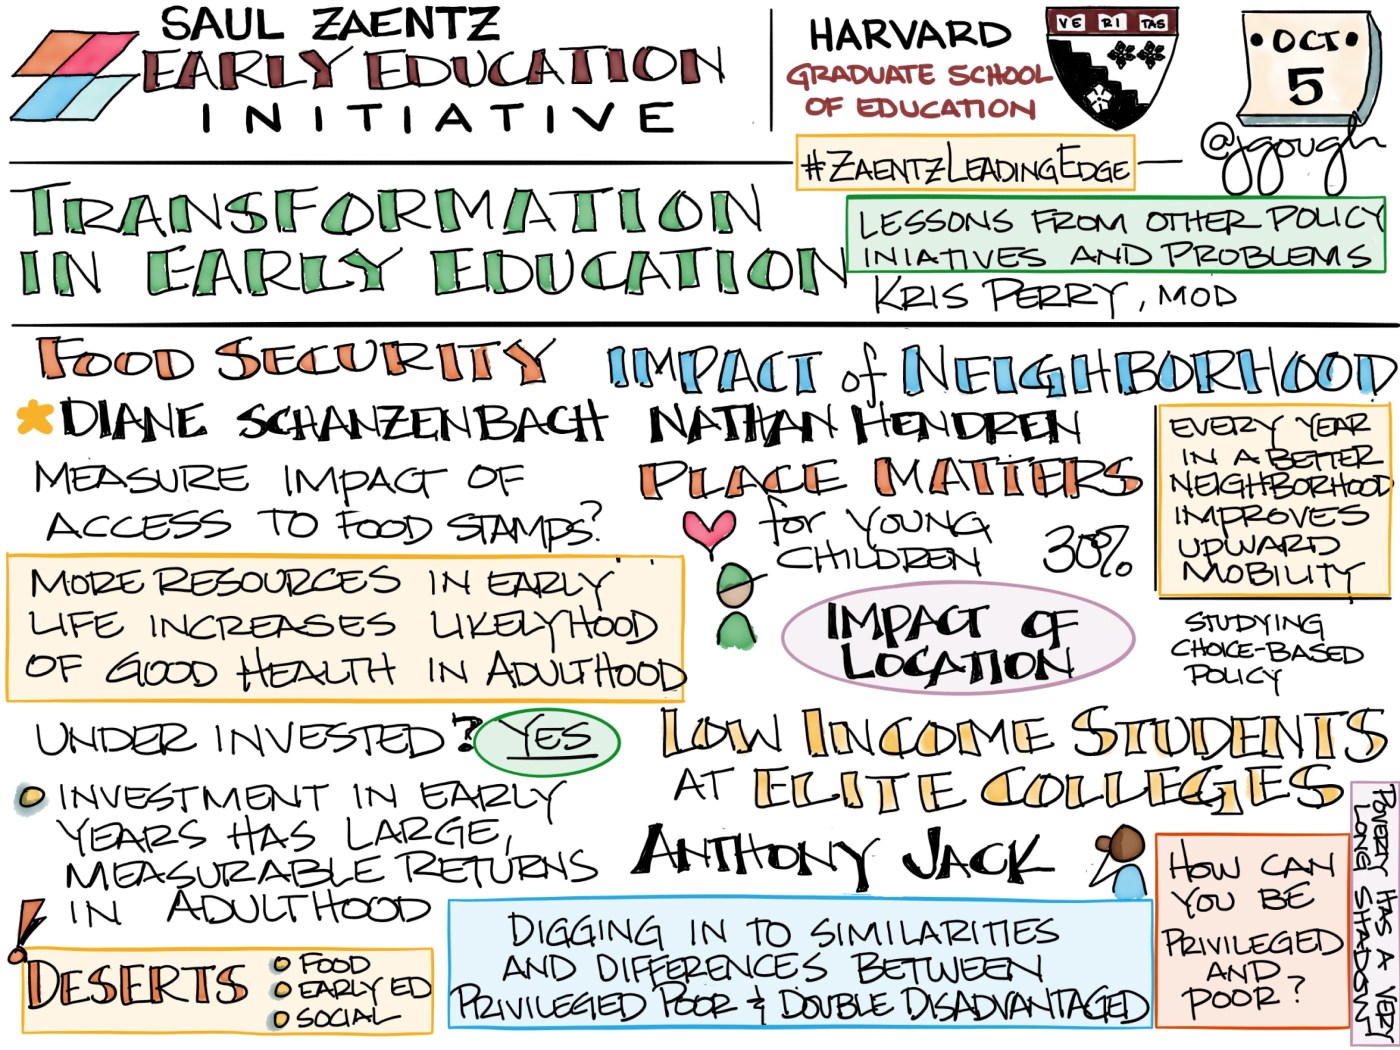 SAUL ZAENTZ
EARLY EDUCATION
INITIATIVE
HARVARD
GRADUATE SCHOOL
OF EDUCATION
VE RI TAS
OCT
5
@jgough
#ZAENTZLEADINGEDGE
TRANSFORMATION
IN EARLY EDUCATION
LESSONS FROM OTHER POLICY
INIATIVES AND PROBLEMS
KRIS PERRY, MOD
FOOD SECURITY
DIANE SCHANZENBACH
MEASURE IMPACT OF
ACCESS TO FOOD STAMPS?
MORE RESOURCES IN EARLY
LIFE INCREASES LIKELYHOOD
OF GOOD HEALTH IN ADULTHOOD
UNDER INVESTED? YES
INVESTMENT IN EARLY
YEARS HAS LARGE,
MEASURABLE RETURNS
IN ADULTHOOD
DESERTS
FOOD
EARLY ED
SOCIAL
IMPACT of NEIGHBORHOOD
NATHAN HENDREN
PLACE MATTERS
for YOUNG
CHILDREN
30%
IMPACT OF
LOCATION
EVERY YEAR
IN A BETTER
NEIGHBORHOOD
IMPROVES
UPWARD
MOBILITY
STUDYING
CHOICE-BASED
POLICY
LOW INCOME STUDENTS
AT ELITE COLLEGES
ANTHONY JACK
DIGGING IN TO SIMILARITIES
AND DIFFERENCES BETWEEN
PRIVILEGED POOR & DOUBLE DISADVANTAGED
HOW CAN
YOU BE
PRIVILEGED
AND
POOR?
POVERTY HAS A VERY
LONG SHADOW